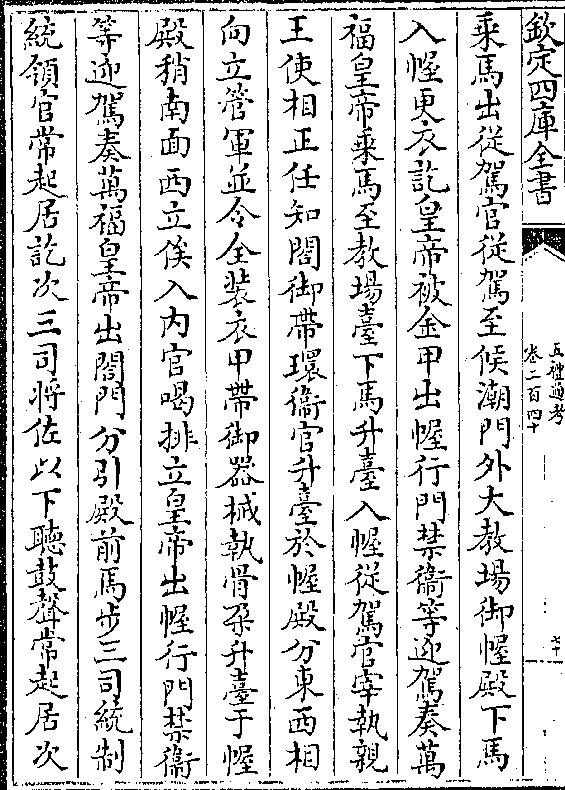 欽定四庫全書
五禮通考
卷二百四十
七十
乘馬出從駕官從駕至候潮門外大教場御幄殿下馬
入幄更衣訖皇帝被金甲出幄行門禁衞等迎駕奏萬
福皇帝乘馬至教場臺下馬升臺入幄從駕官宰執親
王使相正任知閤御帶環衞官升臺於幄殿分東西相
向立管軍並令全裝衣甲帶御器械執骨朶升臺于幄
殿稍南面西立俟入内官喝排立皇帝出幄行門禁衞
等迎駕奏萬福皇帝出閤門分引殿前馬步三司統制
統領官常起居訖次三司將佐以下聽鼓聲常起居次